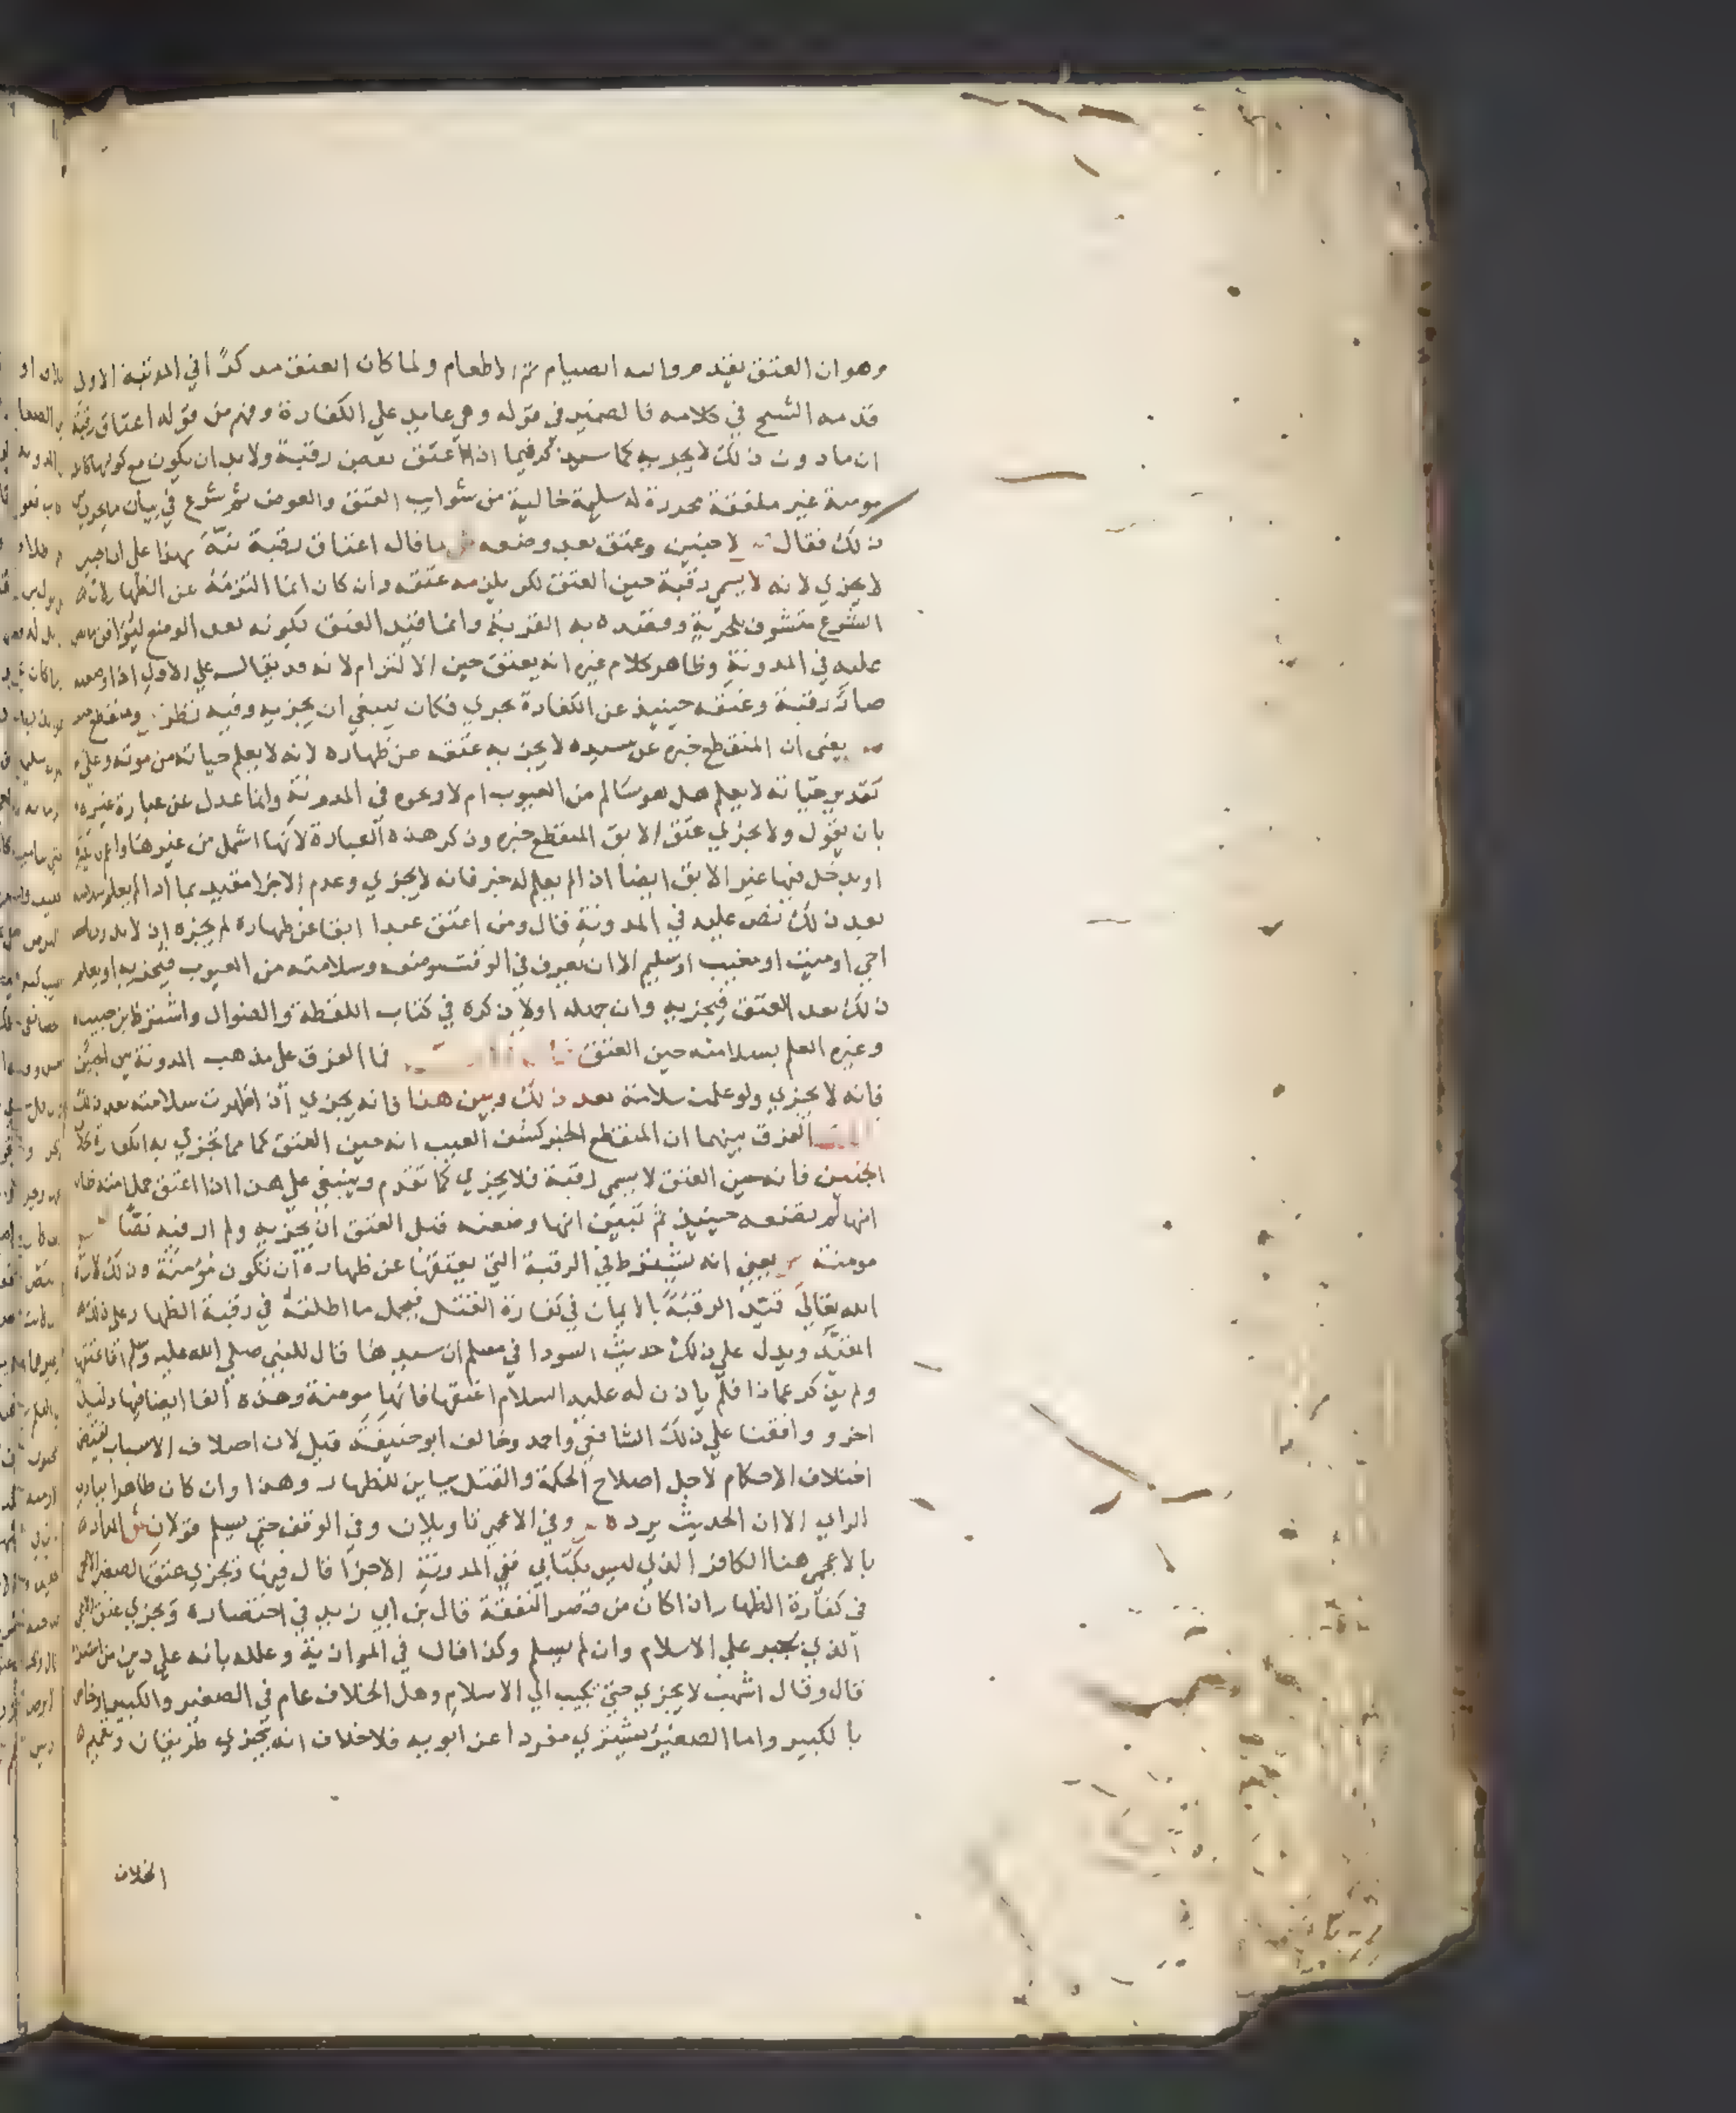 وهو ان العتق يقدم وما نيه الصيام ثم الاطعام ولما كان العتق مدركا في المرتبة الاولى
قدمه الشيخ في كلامه فالضمير في قوله وهي عايد على الكفارة وفهم من قوله اعتاق رقبة
ان ما دون ذلك لا يجزيه كما سيذكر فيما اذا اعتق بعض رقبة ولا بد ان يكون مع كونها كاملة
مومنة غير ملفقة محررة له سليمة خالية من شوايب العتق والعوض ثم شرع في بيان ما يحترز من
ذلك فقال لا جنين وعتق بعد وضعه ش لما قال اعتاق رقبة نبه بهذا على ان الجنين
لا يجزي لانه لا يسمي رقبة حين العتق لكن يلزمه عتقه وان كان انما التزمه عن الظهار لان
الشرع متشوف للحرية وقصده به القربة وانما قيد العتق بكونه بعد الوضع ليوافق ما نص
عليه في المدونة وظاهر كلام غيره انه يعتق حين الالتزام لانه قد يقال على الاول اذا وضعته
صار رقبة وعتقه حينيذ عن الكفارة يجزي فكان ينبغي ان يجزيه وفيه نظر ومنقطع خبره
يعني ان المنقطع خبره عن سيده لا يجزيه عتقه عن ظهاره لانه لا يعلم حياته من موته وعلى
تقدير حياته لا يعلم هل هو سالم من العيوب ام لا ونحوه في المدونة وانما عدل عن عبارة غيره
بان يقول ولا يجزي عتق الابق المنقطع خبره وذكر هذه العبارة لانها اشمل من غيرها واعم
او يدخل فيها غير الابق ايضا اذا لم يعلم له خبر فانه لا يجزي وعدم الاجزا مقيد بما اذا لم يعلم سلامته
بعد ذلك نص عليه في المدونة قال ومن اعتق عبدا ابقا عن ظهاره لم يجزه اذ لا يدري
احي او ميت او معيب او سليم الا ان يعرف في الوقت موضعه وسلامته من العيوب فيجزيه او يعلم
ذلك بعد العتق فيجزيه وان جهله اولا ذكره في كتاب اللقطة والضوال واشترط ابن حبيب
وغيره العلم بسلامته حين العتق فما الفرق على مذهب المدونة بين الجنين
فانه لا يجزي ولو علمت سلامته بعد ذلك وبين هذا فانه يجزي اذا ظهرت سلامته بعد ذلك
الفرق بينهما ان المنقطع الخبر كشف الغيب انه حين العتق كما مما تجزي به الكفارة بخلاف
الجنين فانه حين العتق لا يسمي رقبة فلا يجزي كما تقدم وينبغي على هذا اذا اعتق حمل امته ظانا
انها لم تضعه حينيذ ثم تبين انها وضعته قبل العتق ان يجزيه ولم ار فيه نصا
مومنة يعني انه يشترط في الرقبة التي يعتقها عن ظهاره ان تكون مؤمنة وذلك لان
الله تعالى قيد الرقبة بالايمان في كفارة القتل فيحمل ما اطلقه في رقبة الظهار على ذلك
المقيد ويدل على ذلك حديث السودا في مسلم ان سيدها قال للنبي صلي الله عليه وسلم افاعتقها
ولم يذكر عماذا فلم ياذن له عليه السلام اعتقها فانها مومنة وهذه الفا ايضا فيها دليل
اخر و وافقنا على ذلك الشافعي واحمد وخالف ابو حنيفة قيل لان اختلاف الاسباب يقتضي
اختلاف الاحكام لاجل اصلاح الحكمة والقتل يباين للظهار وهذا وان كان ظاهرا ببادي
الراي الا ان الحديث يرده وفي الاعجمي تاويلان وفي الوقف حتي يسلم قولان ش المراد
بالاعجمي هنا الكافر الذي ليس بكتابي ففي المدونة الاجزا قال فيها ويجزي عتق الصغير الاعجمي
في كفارة الظهار اذا كان من قصر النفقة قال بن ابي زيد في اختصاره ويجزي عتق الاعجمي
الذي يجبر علي الاسلام وان لم يسلم وكذا قال في الموازية وعلله بانه علي دين من اشتراه
قال وقال اشهب لا يجزي حتي يجيب الي الاسلام وهل الخلاف عام في الصغير والكبير او خاص
بالكبير واما الصغير يشتري مفردا عن ابويه فلا خلاف انه يجزي طريقان وتعميم
الخلاف